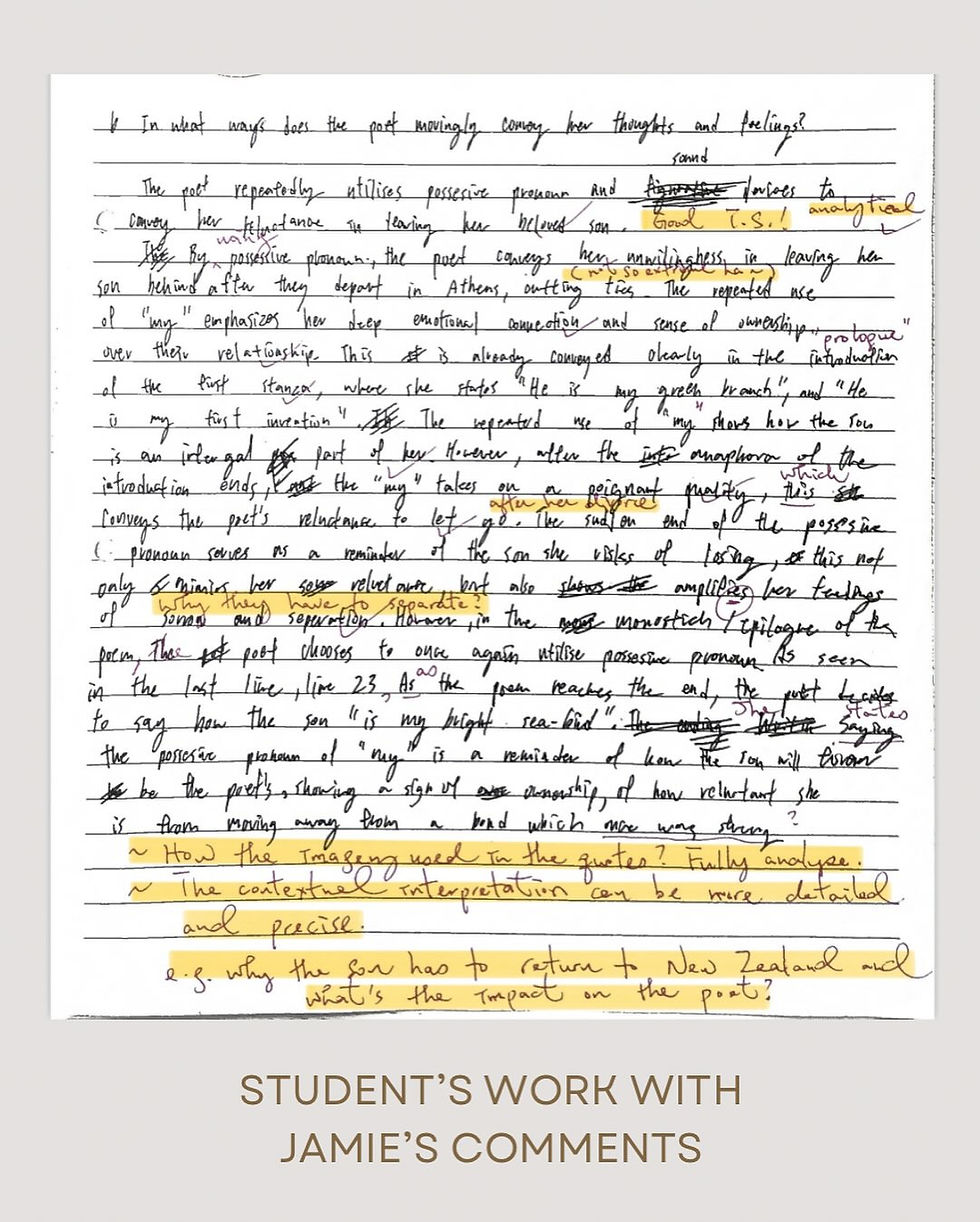 In what ways does the poet movingly convey her thoughts and feelings?
sound
The poet repeatedly utilises possesive pronoun and devices to
analytical
convey her reluctance in leaving her beloved son. Good T.S.!
using
By possessive pronoun, the poet conveys her unwillingness in leaving her
(not so extreme ha~)
son behind after they depart in Athens, cutting ties. The repeated use
of "my" emphasizes her deep emotional connection and sense of ownership
"prologue"
over their relationship. This is already conveyed clearly in the introduction
of the first stanza, where she states "He is my green branch", and "He
is my first invention". The repeated use of "my" shows how the son
is an intergal part of her. However, after the anaphora of the
which
introduction ends, the "my" takes on a poignant quality, this
after her divorce
conveys the poet's reluctance to let go. The sudden end of the possesive
pronoun serves as a reminder of the son she risks of losing, this not
only mimics her reluctance, but also amplifies her feelings
why they have to separate?
of sorrow and seperation. However, in the monostich / epilogue of the
poem, The poet chooses to once again utilise possesive pronoun As seen
as
in the last line, line 23, As the poem reaches the end, the poet decides
The states
to say how the son "is my bright sea-bird". Saying
the possesive pronoun of "my" is a reminder of how the son will forever
be the poet's, showing a sign of ownership, of how reluctant she
is from moving away from a bond which once was strong?
~ How the imagery used in the quotes? Fully analyse.
~ The contextual interpretation can be more detailed
and precise.
e.g. why the son has to return to New Zealand and
what's the impact on the poet?
STUDENT'S WORK WITH
JAMIE'S COMMENTS